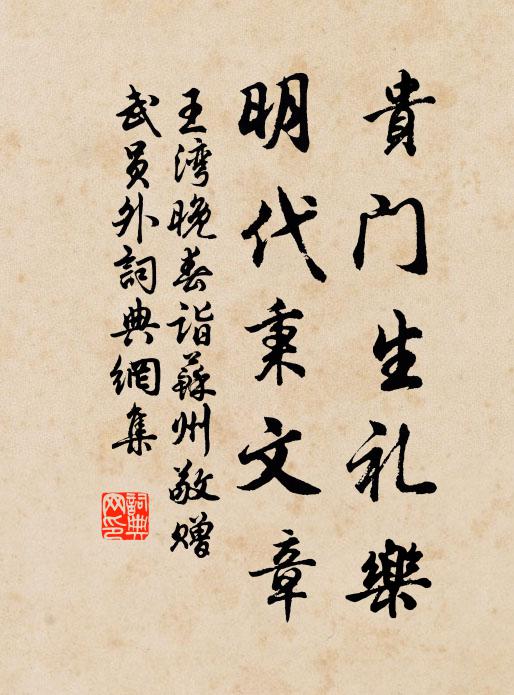 貴門生礼樂
明代秉文章
王湾晚春詣蘇州敬贈
武員外詞典網集
詞典網印